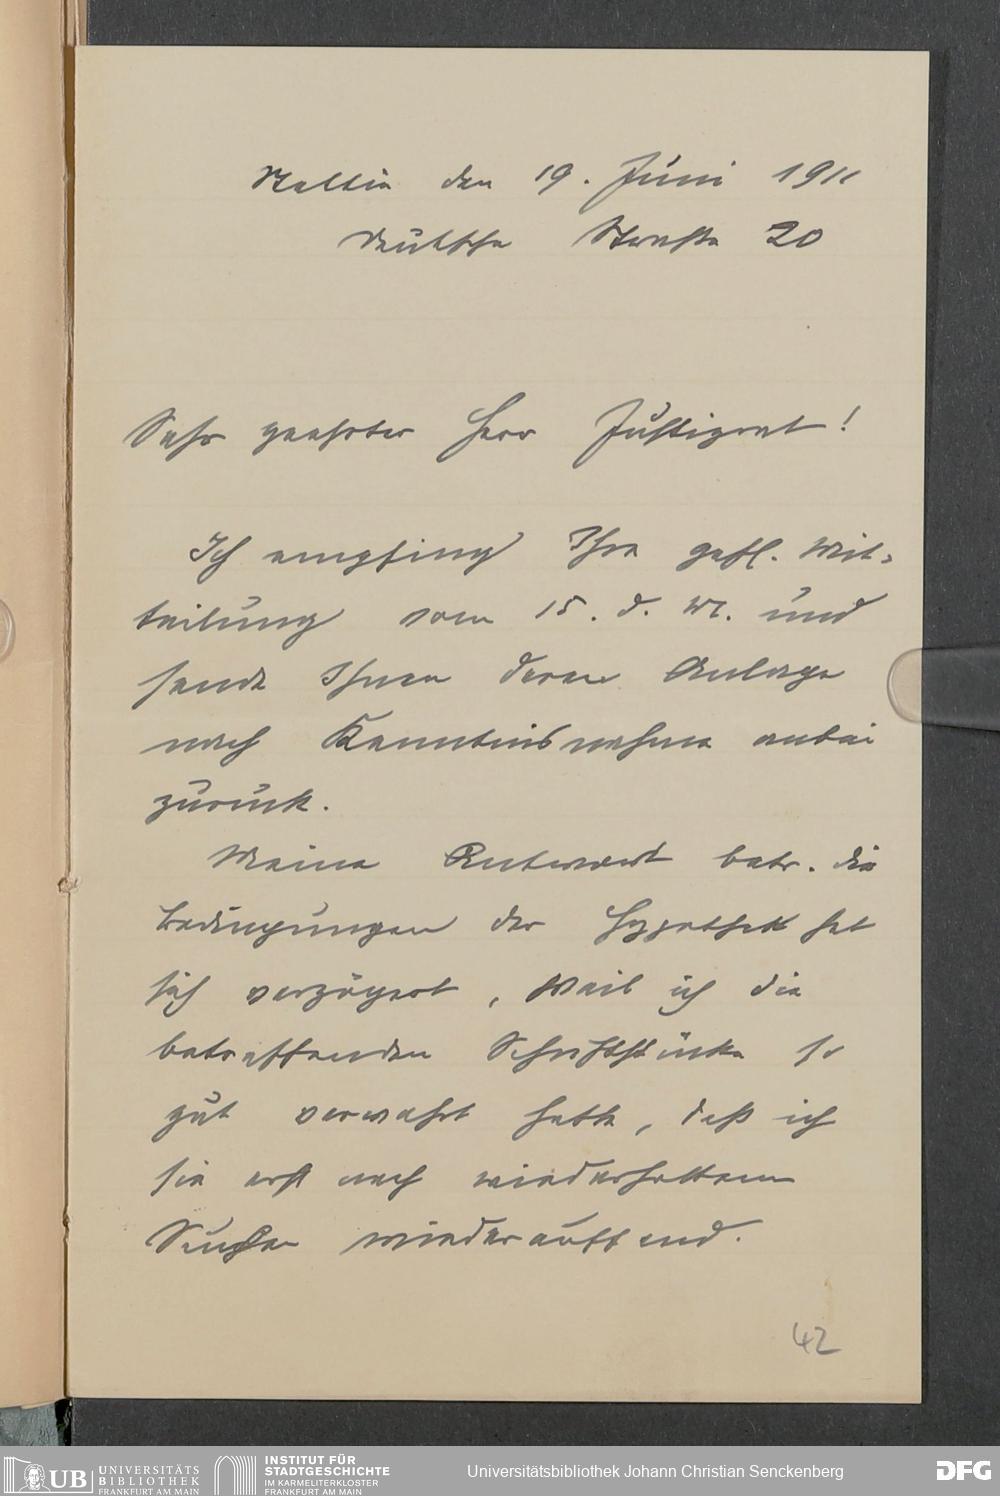 Stettin den 19. Juni 1911
Deutsche Straße 20
Sehr geehrter Herr Justizrat!
Ich empfing Ihre gefl. Mit-
teilung vom 15. d. M. und
sende Ihnen deren Anlage
nach Kenntnisnahme anbei
zurück.
Meine Antwort betr. die
Bedingungen der Hypothek hat
sich verzögert, weil ich die
betreffenden Schriftstücke so
gut verwahrt hatte, daß ich
sie erst nach wiederholtem
Suchen wieder auffand.
42
UB
UNIVERSITÄTS
BIBLIOTHEK
FRANKFURT AM MAIN
INSTITUT FÜR
STADTGESCHICHTE
IM KARMELITERKLOSTER
FRANKFURT AM MAIN
Universitätsbibliothek Johann Christian Senckenberg
DFG